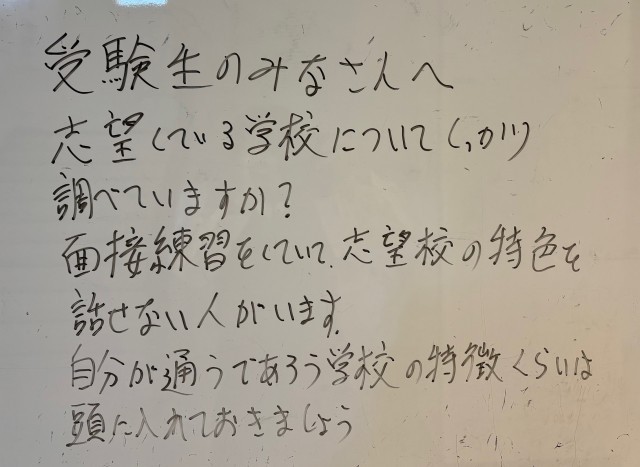 受験生のみなさんへ
志望している学校についてしっかり
調べていますか?
面接練習をしていて、志望校の特色を
話せない人がいます。
自分が通うであろう学校の特徴くらいは
頭に入れておきましょう